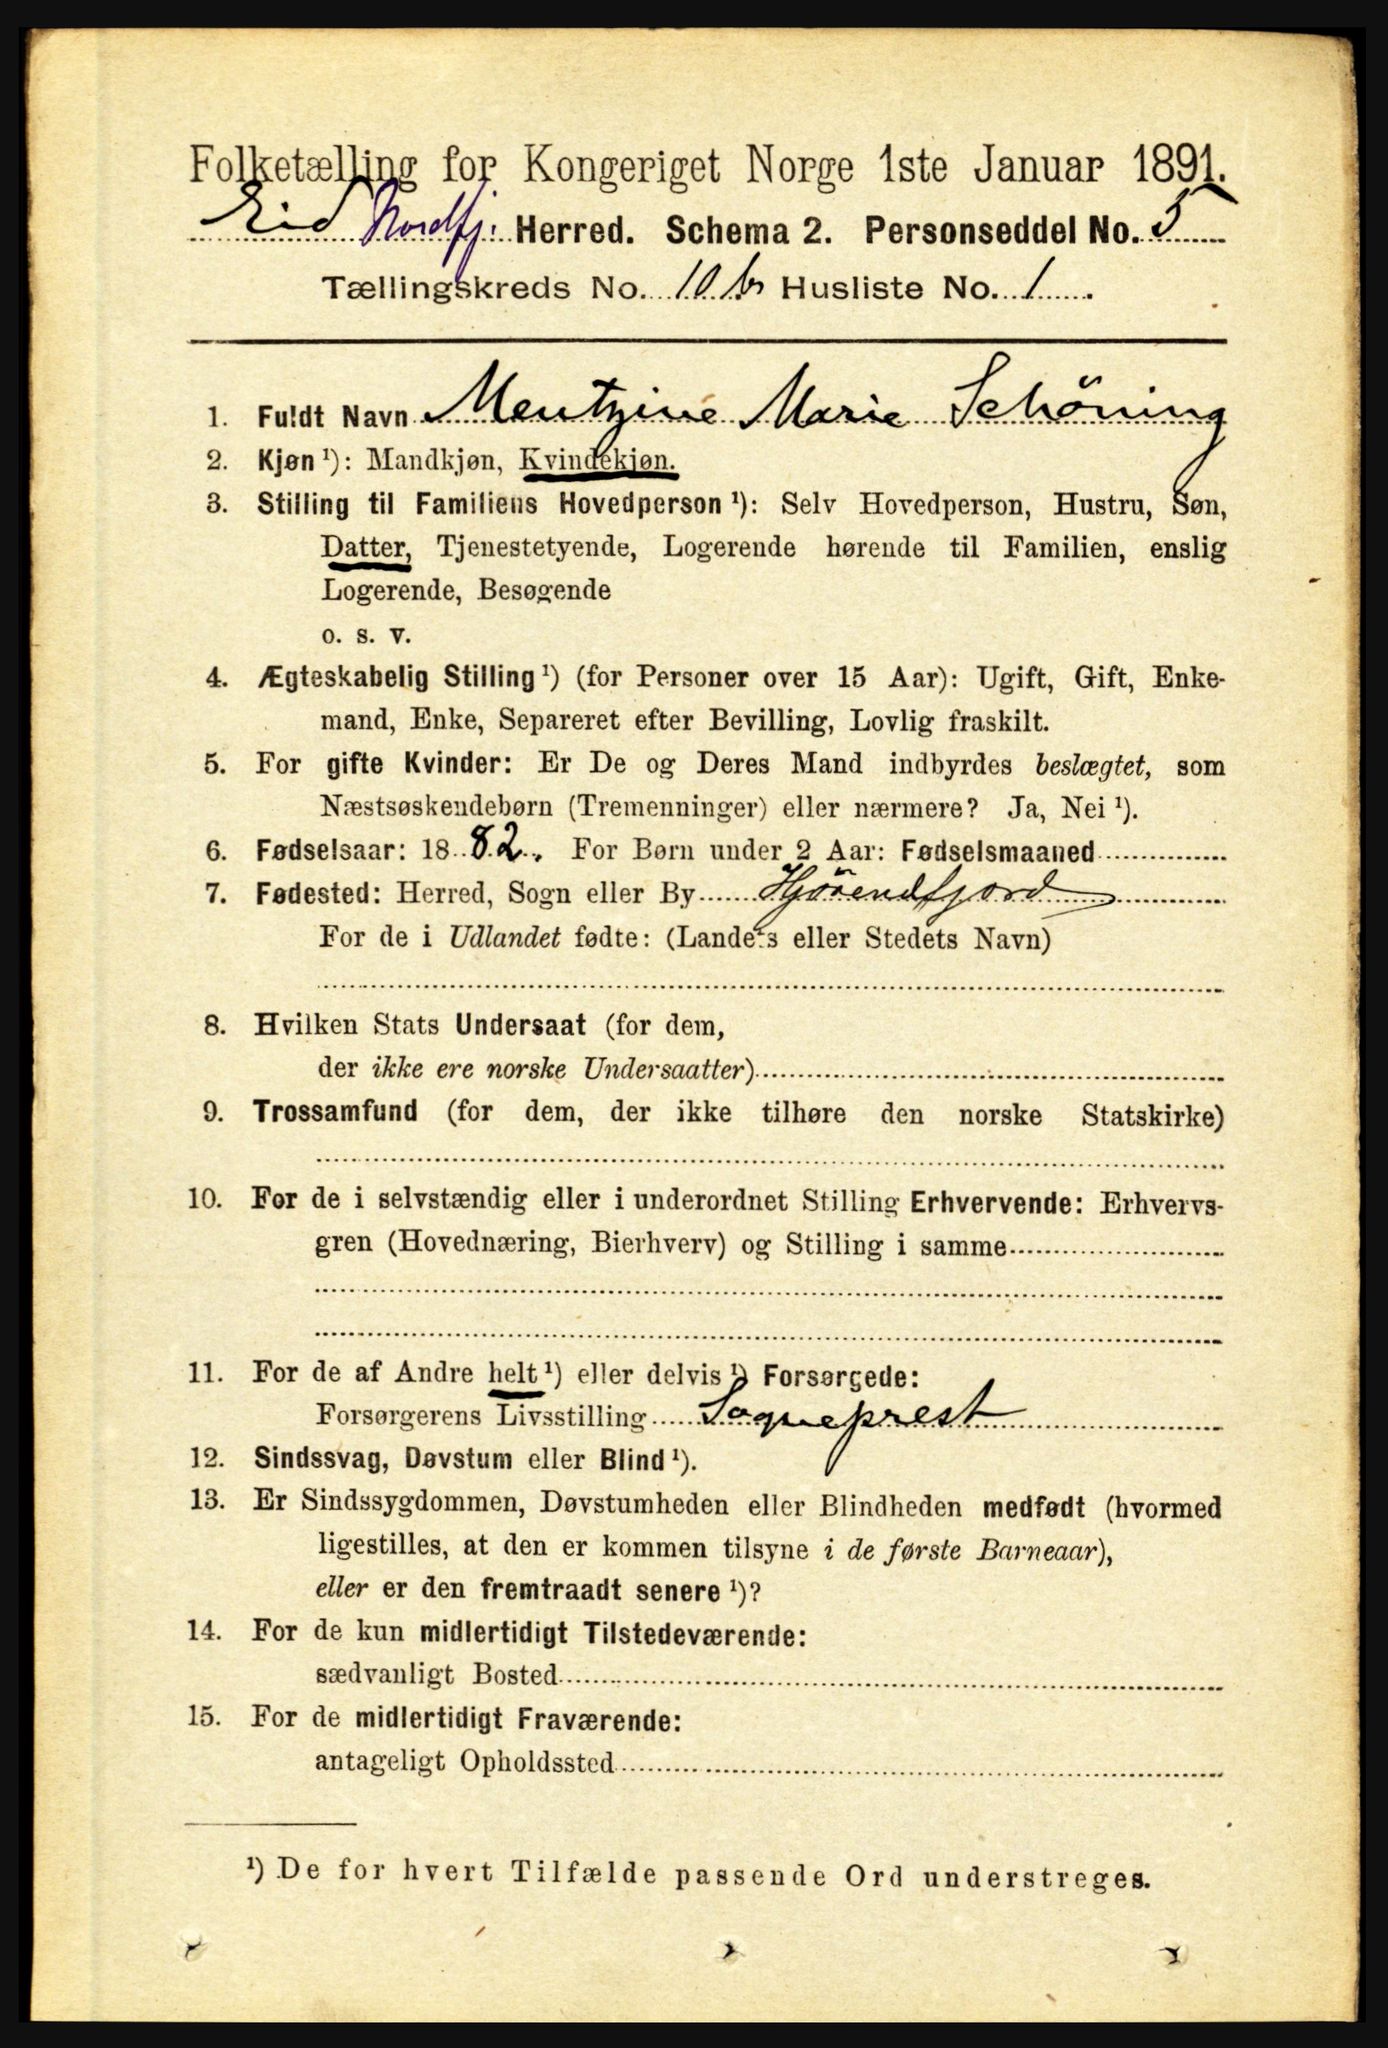 Folketælling for Kongeriget Norge 1ste Januar 1891.
Eid Nordfj. Herred. Schema 2. Personseddel No. 5
Tællingskreds No. 10 b Husliste No. 1
1. Fuldt Navn Mentzine Marie Schöning
2. Kjøn ¹): Mandkjøn, Kvindekjøn.
3. Stilling til Familiens Hovedperson ¹): Selv Hovedperson, Hustru, Søn,
Datter, Tjenestetyende, Logerende hørende til Familien, enslig
Logerende, Besøgende
o. s. v.
4. Ægteskabelig Stilling ¹) (for Personer over 15 Aar): Ugift, Gift, Enke-
mand, Enke, Separeret efter Bevilling, Lovlig fraskilt.
5. For gifte Kvinder: Er De og Deres Mand indbyrdes beslægtet, som
Næstsøskendebørn (Tremenninger) eller nærmere? Ja, Nei ¹).
6. Fødselsaar: 1882. For Børn under 2 Aar: Fødselsmaaned
7. Fødested: Herred, Sogn eller By Hjörendfjord
For de i Udlandet fødte: (Landets eller Stedets Navn)
8. Hvilken Stats Undersaat (for dem,
der ikke ere norske Undersaatter)
9. Trossamfund (for dem, der ikke tilhøre den norske Statskirke)
10. For de i selvstændig eller i underordnet Stilling Erhvervende: Erhvervs-
gren (Hovednæring, Bierhverv) og Stilling i samme
11. For de af Andre helt ¹) eller delvis ¹) Forsørgede:
Forsørgerens Livsstilling Sogneprest
12. Sindssvag, Døvstum eller Blind ¹).
13. Er Sindssygdommen, Døvstumheden eller Blindheden medfødt (hvormed
ligestilles, at den er kommen tilsyne i de første Barneaar),
eller er den fremtraadt senere ¹)?
14. For de kun midlertidigt Tilstedeværende:
sædvanligt Bosted
15. For de midlertidigt Fraværende:
antageligt Opholdssted
¹) De for hvert Tilfælde passende Ord understreges.